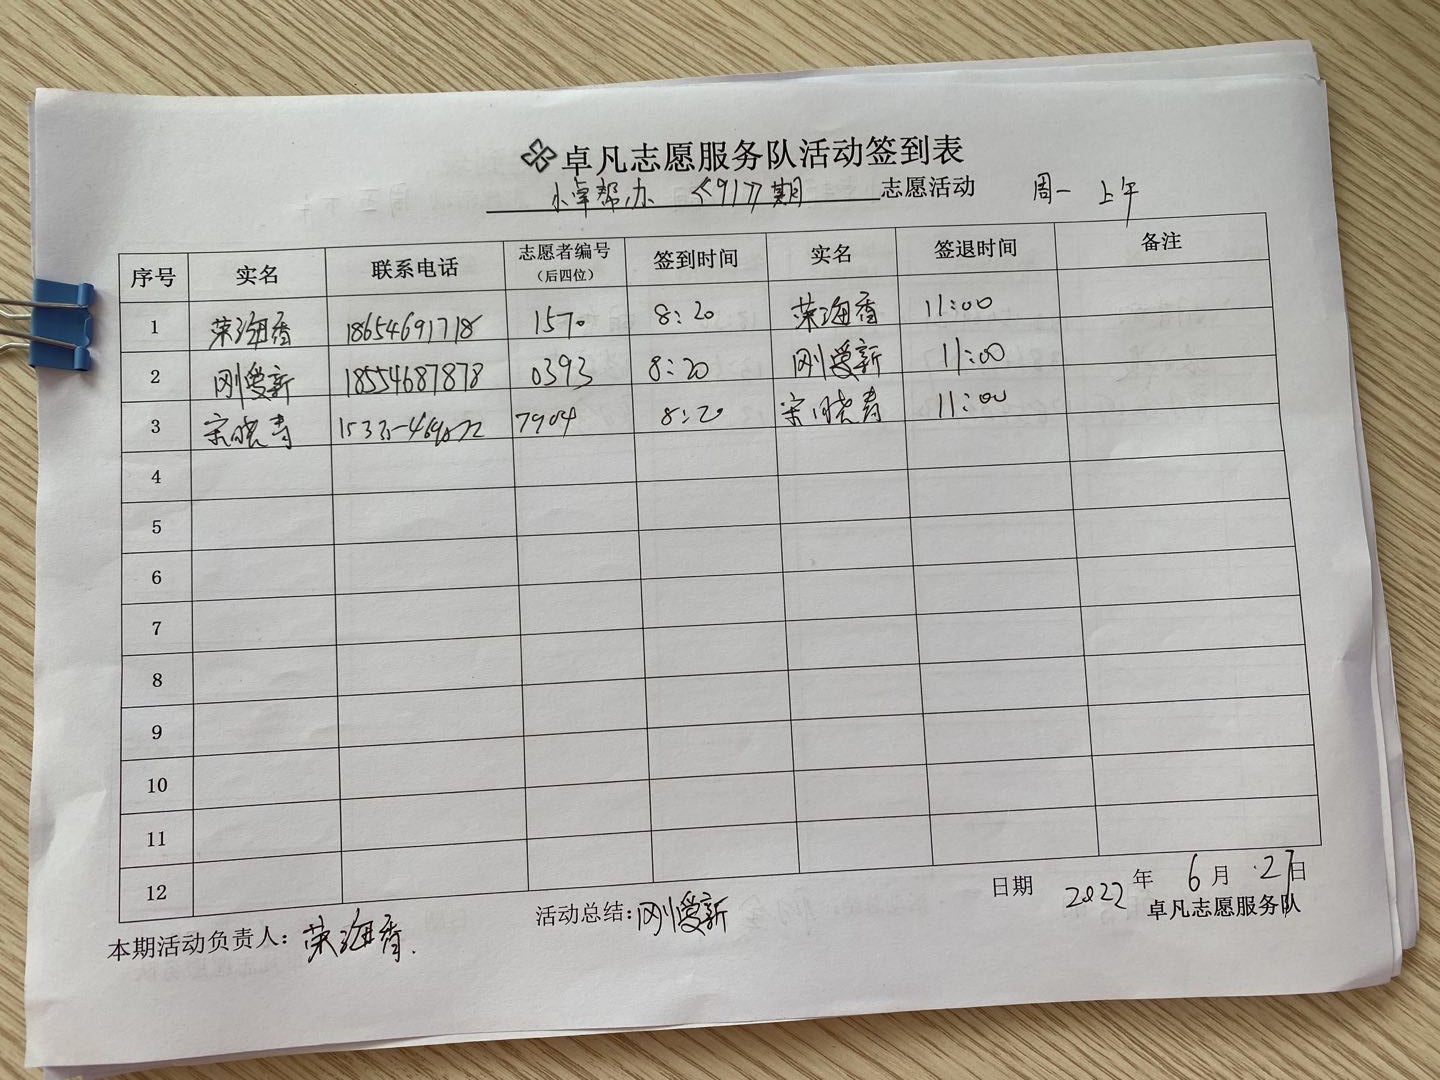 卓凡志愿服务队活动签到表
小卓帮办 《91》期 志愿活动 周一 上午
序号 实名 联系电话 志愿者编号（后四位） 签到时间 实名 签退时间 备注
1 荣海香 18654691718 1570 8:20 荣海香 11:00
2 刚爱新 18554687878 0393 8:20 刚爱新 11:00
3 宋晓青 7904 8:20 宋晓青 11:00
4
5
6
7
8
9
10
11
12
日期 2022 年 6 月 27 日
本期活动负责人：荣海香. 活动总结：刚爱新 卓凡志愿服务队